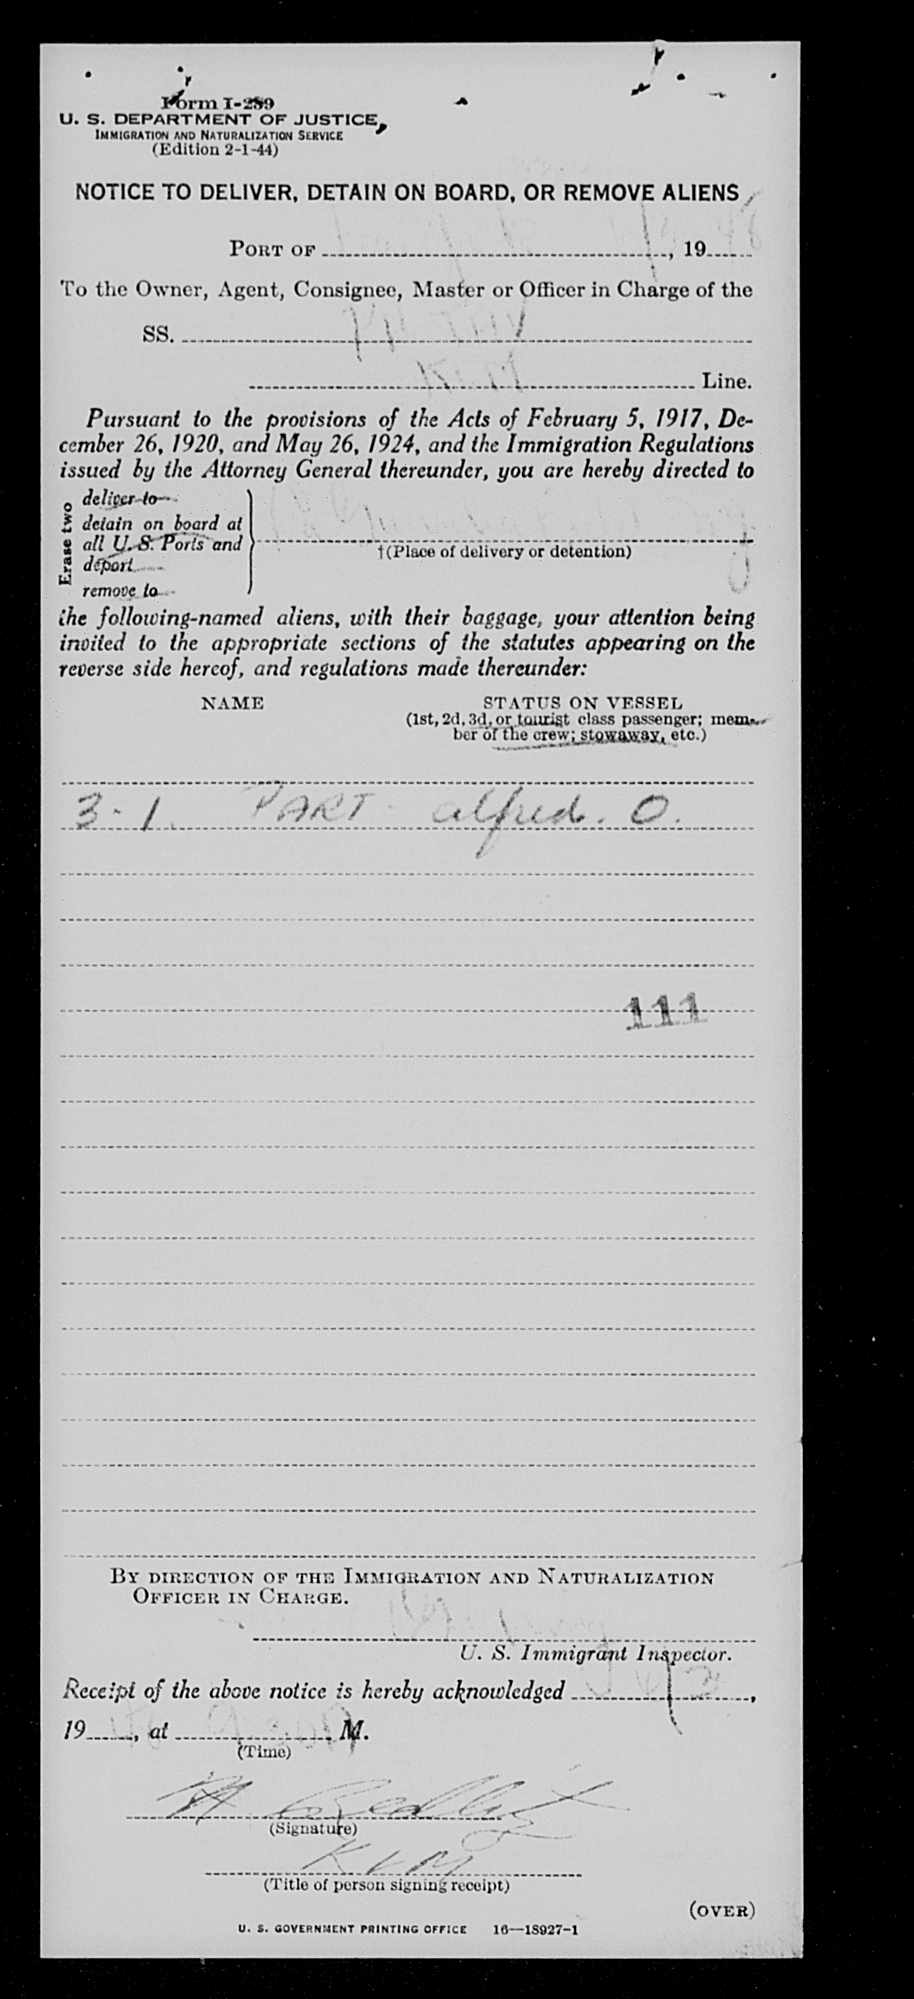 Form I-259
U. S. DEPARTMENT OF JUSTICE
IMMIGRATION AND NATURALIZATION SERVICE
(Edition 2-1-44)
NOTICE TO DELIVER, DETAIN ON BOARD, OR REMOVE ALIENS
PORT OF , 19
To the Owner, Agent, Consignee, Master or Officer in Charge of the
SS.
Line.
Pursuant to the provisions of the Acts of February 5, 1917, De-
cember 26, 1920, and May 26, 1924, and the Immigration Regulations
issued by the Attorney General thereunder, you are hereby directed to
Erase two
deliver to
detain on board at
all U. S. Ports and
deport
remove to
†(Place of delivery or detention)
the following-named aliens, with their baggage, your attention being
invited to the appropriate sections of the statutes appearing on the
reverse side hereof, and regulations made thereunder:
NAME STATUS ON VESSEL
(1st, 2d, 3d, or tourist class passenger; mem-
ber of the crew; stowaway, etc.)
3-1. PART - alfred. O.
111
BY DIRECTION OF THE IMMIGRATION AND NATURALIZATION
OFFICER IN CHARGE.
U. S. Immigrant Inspector.
Receipt of the above notice is hereby acknowledged ,
19 , at M.
(Time)
(Signature)
KLM
(Title of person signing receipt)
(OVER)
U. S. GOVERNMENT PRINTING OFFICE 16—18927-1